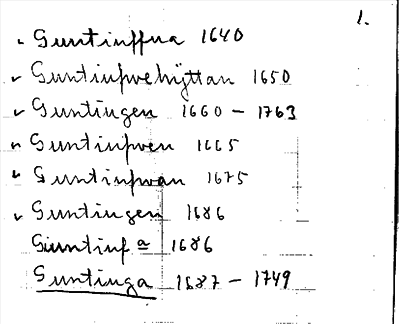 1.
Guntinffna 1640
Guntinpwehyttan 1650
Guntingen 1660 - 1763
Guntinpwen 1665
Guntinpwan 1675
Guntingen 1686
Guntinf a 1686
Guntinga 1687 - 1749